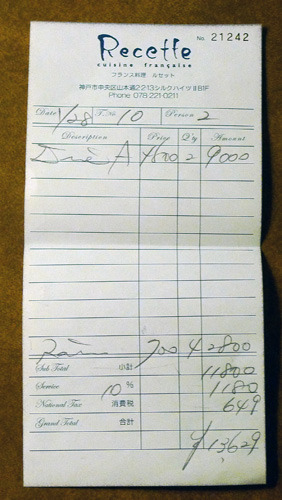 Recette
No. 21242
cuisine française
フランス料理 ルセット
神戸市中央区山本通2-2-13シルクハイツⅡB1F
Phone 078-221-0211
Date 1/28 T.No 10 Person 2
Description Price Q'y Amount
A 4500 2 9000
700 4 2800
Sub Total 小計 11800
Service 10 % 1180
National Tax 消費税 649
Grand Total 合計
¥13629